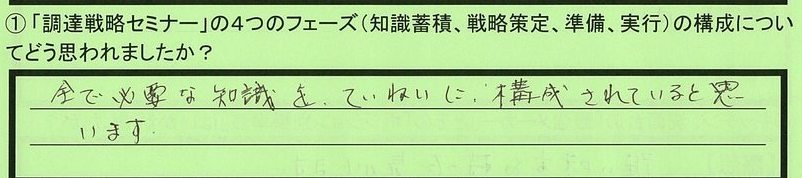 ①「調達戦略セミナー」の４つのフェーズ（知識蓄積、戦略策定、準備、実行）の構成につい
てどう思われましたか？
全て必要な知識を、ていねいに、構成されていると思
います.